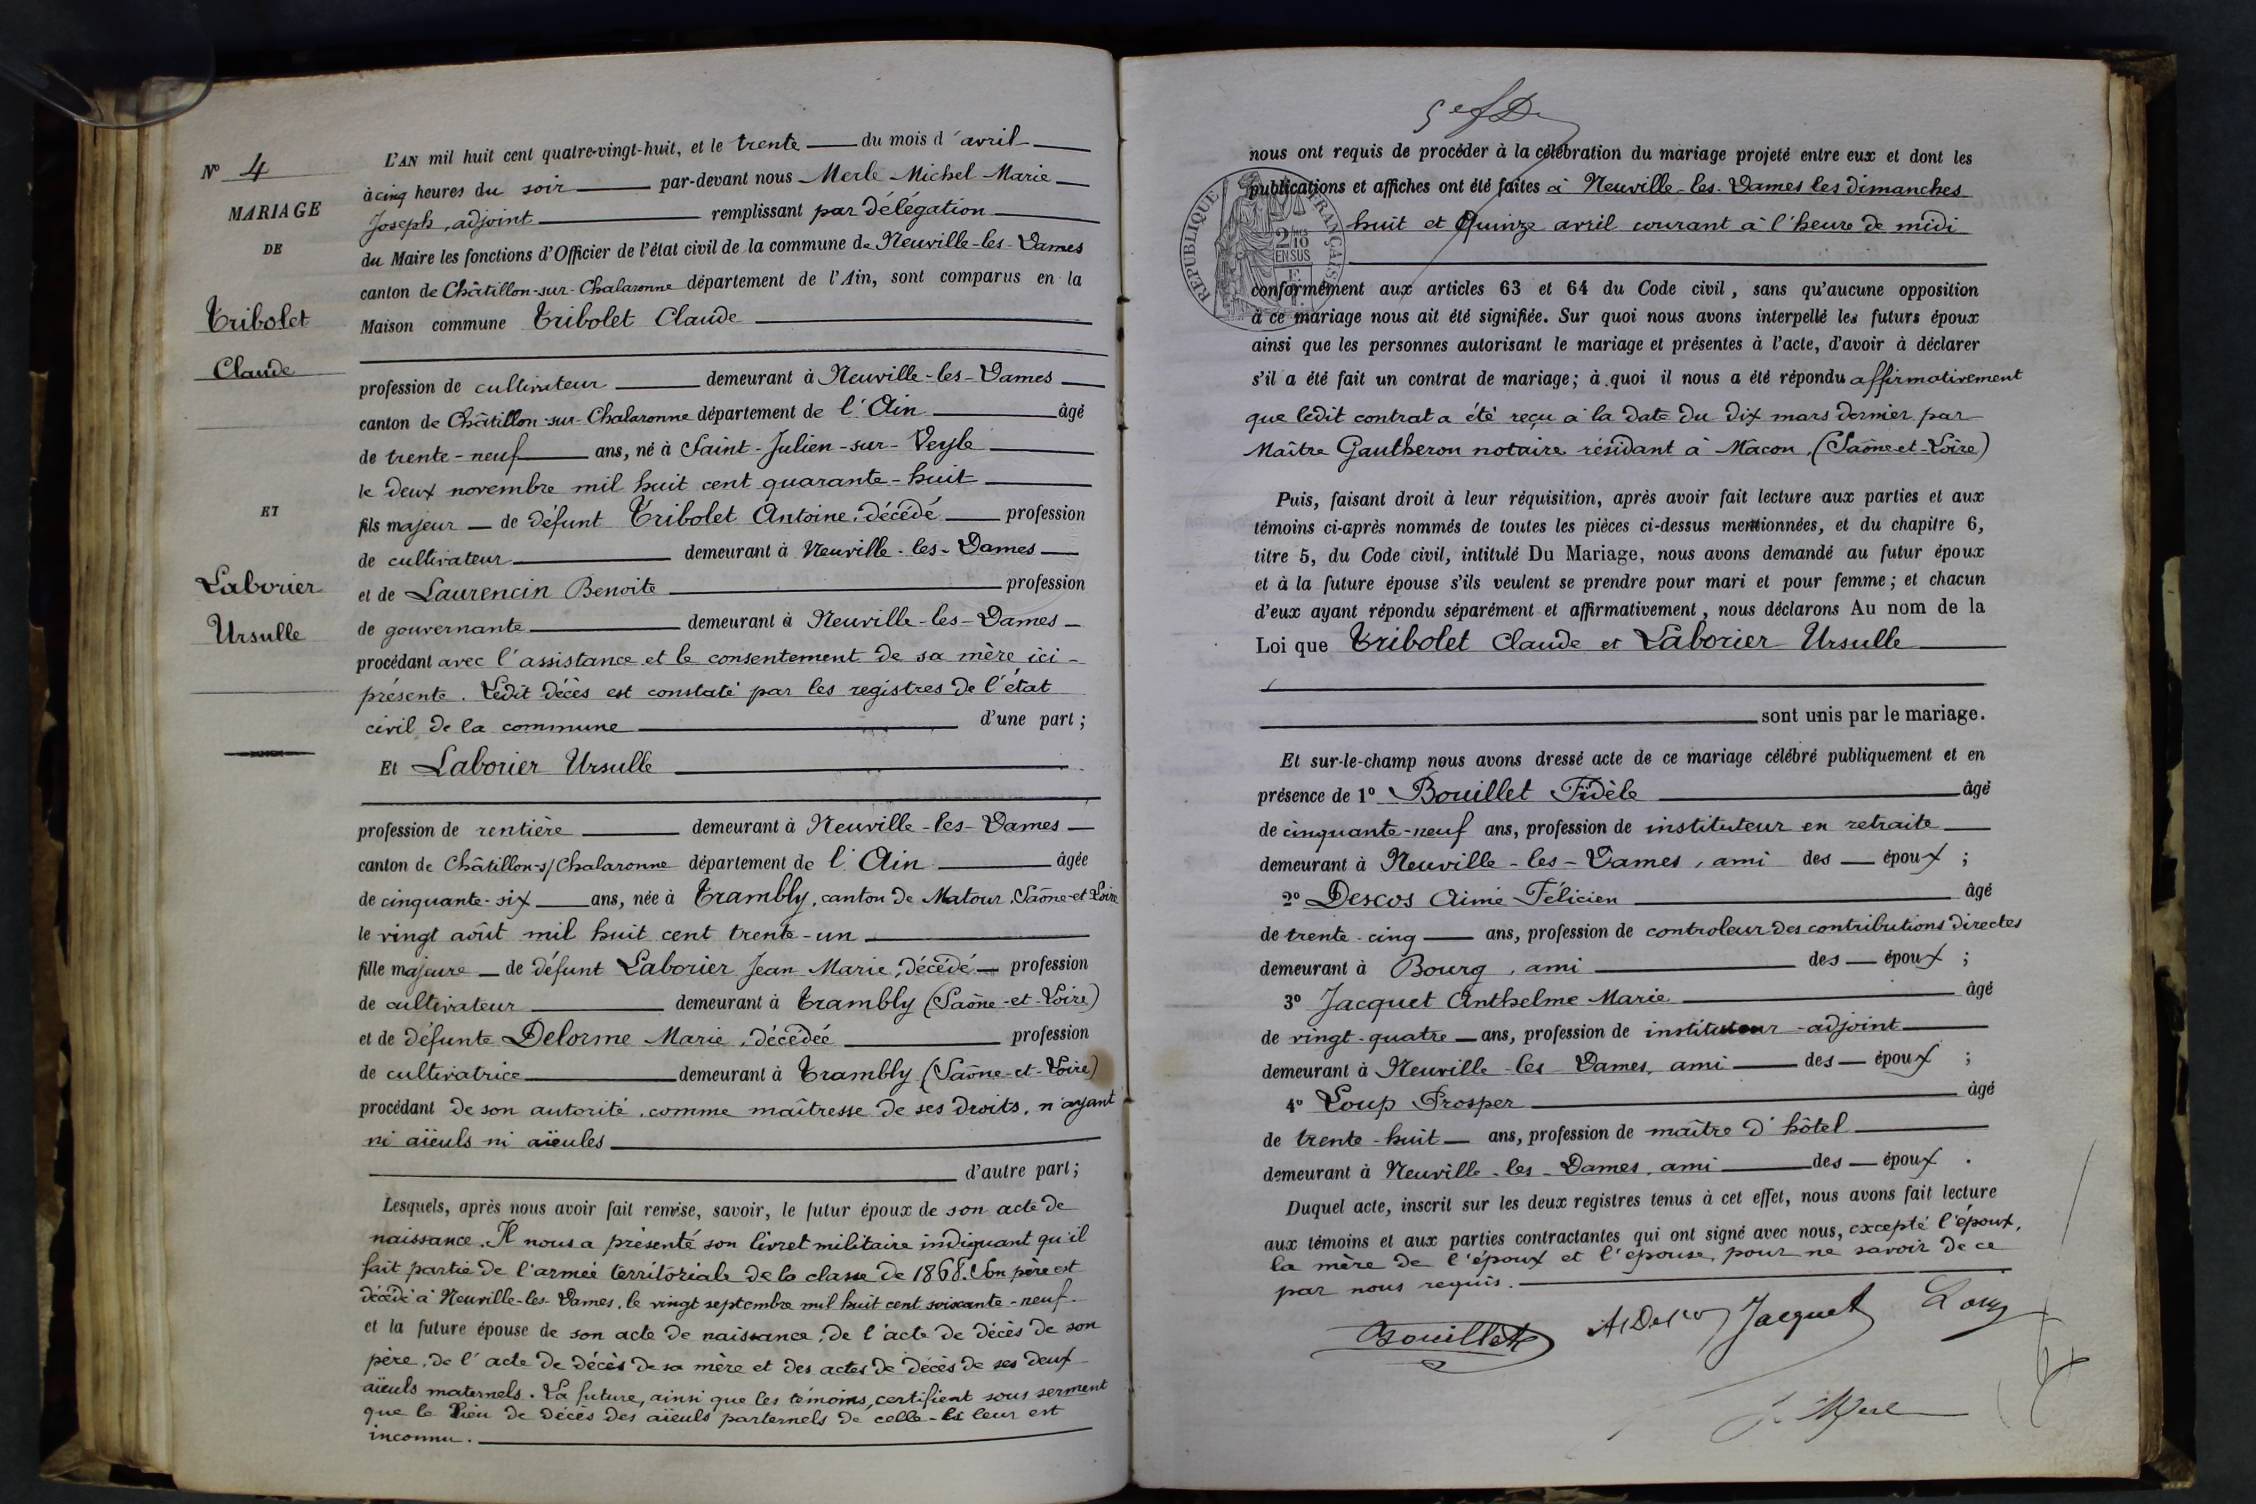 N° 4
MARIAGE
DE
Tribolet
Claude
ET
Laborier
Ursulle
L'AN mil huit cent quatre-vingt-huit, et le trente du mois d'avril
à cinq heures du soir par-devant nous Merle Michel Marie
Joseph, adjoint remplissant par délégation
du Maire les fonctions d'Officier de l'état civil de la commune de Neuville-les-Dames
canton de Châtillon-sur-Chalaronne département de l'Ain, sont comparus en la
Maison commune Tribolet Claude
profession de cultivateur demeurant à Neuville-les-Dames
canton de Châtillon-sur-Chalaronne département de l'Ain âgé
de trente-neuf ans, né à Saint-Julien-sur-Veyle
le deux novembre mil huit cent quarante-huit
fils majeur de défunt Tribolet Antoine, décédé profession
de cultivateur demeurant à Neuville-les-Dames
et de Laurencin Benoite profession
de gouvernante demeurant à Neuville-les-Dames
procédant avec l'assistance et le consentement de sa mère ici-
présente. Ledit décès est constaté par les registres de l'état
civil de la commune d'une part;
Et Laborier Ursulle
profession de rentière demeurant à Neuville-les-Dames
canton de Châtillon-s/Chalaronne département de l'Ain âgée
de cinquante-six ans, née à Trambly, canton de Matour, Saône-et-Loire
le vingt août mil huit cent trente-un
fille majeure de défunt Laborier Jean Marie, décédé profession
de cultivateur demeurant à Trambly (Saône-et-Loire)
et de défunte Delorme Marie, décédée profession
de cultivatrice demeurant à Trambly (Saône-et-Loire)
procédant de son autorité, comme maîtresse de ses droits, n'ayant
ni aïeuls ni aïeules
d'autre part;
Lesquels, après nous avoir fait remise, savoir, le futur époux de son acte de
naissance. Il nous a présenté son livret militaire indiquant qu'il
fait partie de l'armée territoriale de la classe de 1868. Son père est
décédé à Neuville-les-Dames, le vingt septembre mil huit cent soixante-neuf.
et la future épouse de son acte de naissance, de l'acte de décès de son
père, de l'acte de décès de sa mère et des actes de décès de ses deux
aïeuls maternels. La future, ainsi que les témoins, certifient sous serment
que le lieu de décès des aïeuls parternels de celle-ci leur est
inconnu.
nous ont requis de procéder à la célébration du mariage projeté entre eux et dont les
publications et affiches ont été faites à Neuville-les-Dames les dimanches
huit et Quinze avril courant à l'heure de midi
RÉPUBLIQUE FRANÇAISE
2/10
EN SUS
conformément aux articles 63 et 64 du Code civil, sans qu'aucune opposition
à ce mariage nous ait été signifiée. Sur quoi nous avons interpellé les futurs époux
ainsi que les personnes autorisant le mariage et présentes à l'acte, d'avoir à déclarer
s'il a été fait un contrat de mariage; à quoi il nous a été répondu affirmativement
que ledit contrat a été reçu à la date du dix mars dernier par
Maître Gautheron notaire résidant à Macon, (Saône-et-Loire)
Puis, faisant droit à leur réquisition, après avoir fait lecture aux parties et aux
témoins ci-après nommés de toutes les pièces ci-dessus mentionnées, et du chapitre 6,
titre 5, du Code civil, intitulé Du Mariage, nous avons demandé au futur époux
et à la future épouse s'ils veulent se prendre pour mari et pour femme; et chacun
d'eux ayant répondu séparément et affirmativement, nous déclarons Au nom de la
Loi que Tribolet Claude et Laborier Ursulle
sont unis par le mariage.
Et sur-le-champ nous avons dressé acte de ce mariage célébré publiquement et en
présence de 1° Bouillet Fidèle âgé
de cinquante-neuf ans, profession de instituteur en retraite
demeurant à Neuville-les-Dames, ami des époux;
2° Descos Aimé Félicien âgé
de trente-cinq ans, profession de controleur des contributions directes
demeurant à Bourg, ami des époux;
3° Jacquet Anthelme Marie âgé
de vingt-quatre ans, profession de instituteur-adjoint
demeurant à Neuville-les-Dames, ami des époux;
4° Loup Prosper âgé
de trente-huit ans, profession de maître d'hôtel
demeurant à Neuville-les-Dames, ami des époux.
Duquel acte, inscrit sur les deux registres tenus à cet effet, nous avons fait lecture
aux témoins et aux parties contractantes qui ont signé avec nous, excepté l'époux,
la mère de l'époux et l'épouse, pour ne savoir de ce
par nous requis.
Bouillet A Descos Jacquet Loup
J. Merle